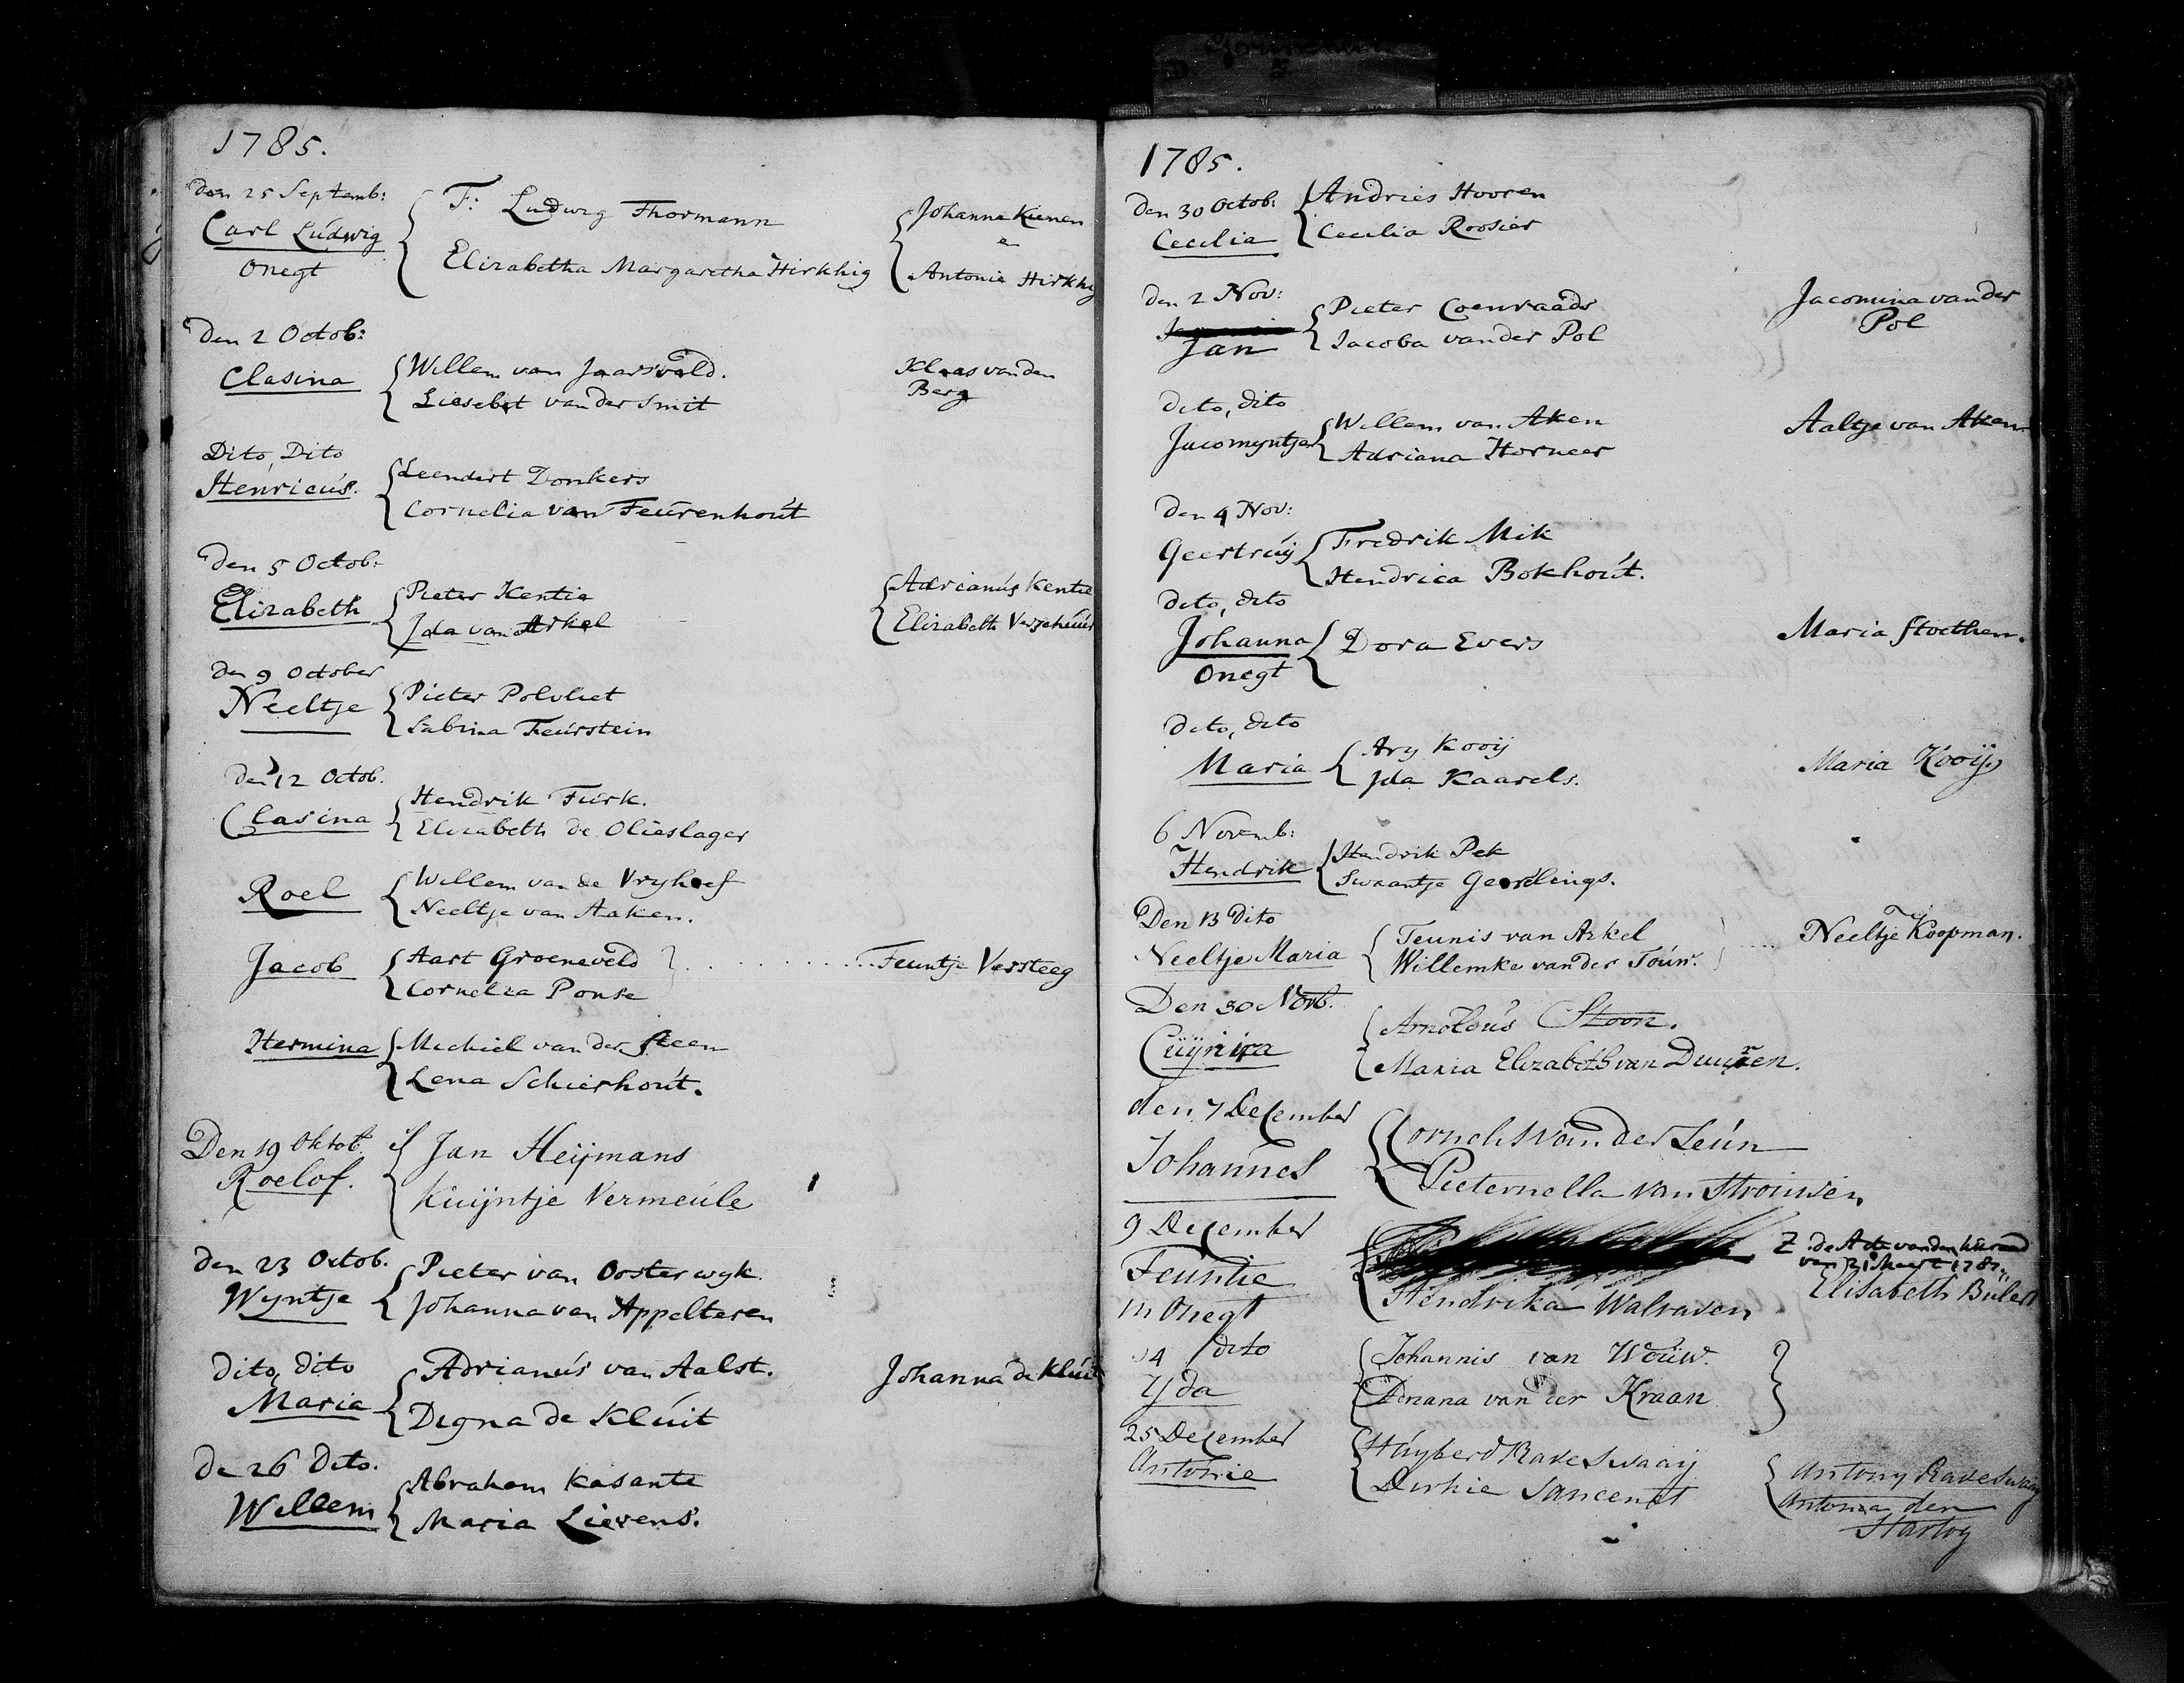 1785.
den 25 Septemb:
Carl Ludwig
Onegt
F: Ludwig Thormann
Elizabetha Margaretha Hirkhig
Johanna Kienen
en
Antonia Hirkhig
den 2 Octob:
Clasina
Willem van Jaarsveld.
Liesebet van der Smit
Klaas van den
Berg
Dito, Dito
Henricús.
Leendert Donkers
Cornelia van Teúrenhoút
den 5 Octob:
Elizabeth
Pieter Kentie
Ida van Arkel
Adrianús Kentie
Elizabeth Verscheúúr
den 9 October
Neeltje
Pieter Polvliet
Sabina Feúrstein
den 12 Octob.
Clasina
Hendrik Túrk.
Elizabeth de Olieslager
Roel
Willem van de Vryhoef
Neeltje van Aaken.
Jacob
Aart Groeneveld
Cornelia Ponse
Teuntje Versteeg
Hermina
Michiel van der Steen
Lena Schierhoút.
Den 19 Oktob.
Roelof.
Jan Heijmans
Kuijntje Vermeúle
den 23 Octob.
Wyntje
Pieter van Oosterwyk
Johanna van Appelteren
dito, dito
Maria
Adrianús van Aalst.
Digna de Klúit
Johanna de Klúit
de 26 dito.
Willem
Abraham Kasante
Maria Lievens.
1785.
den 30 Octob:
Cecilia
Andries Hooren
Cecilia Roosier
den 2 Nov:
Jan
Pieter Coenraads
Jacoba van der Pol
Jacomina van der
Pol
dito, dito
Jacomyntje
Willem van Aken
Adriana Horneer
Aaltje van Aken
den 4 Nov:
Geertrúy
Fredrik Mik
Hendrica Bokhoút.
dito, dito
Johanna
Onegt
Dora Evers
Maria Stoethen.
dito, dito
Maria
Ary Kooij
Ida Kaarels.
Maria Kooij
6 Novemb:
Hendrik
Hendrik Pek
Swaantje Geerlings.
Den 13 dito
Neeltje Maria
Teunis van Arkel
Willemke van der Toúw.
Neeltje Koopman.
Den 30 Novb.
Cuijnira
Arnoldús Stoon.
Maria Elizabeth van Duuren.
den 7 December
Johannes
Cornelis van der Leún
Pieternella van Strouwen
9 December
Teuntie
in Onegt
Hendrika Walraven
Z. de Acte van den kúraad
van 21 Maart 1787
Elisabeth Bulert
14 dito
Yda
Johannis van Woúw.
Adriana van der Kraan
25 December
Antonie
Húyberd Raveswaaij
Dirkie Sancenet
Antony Raveswaay
Antonia den
Hartog